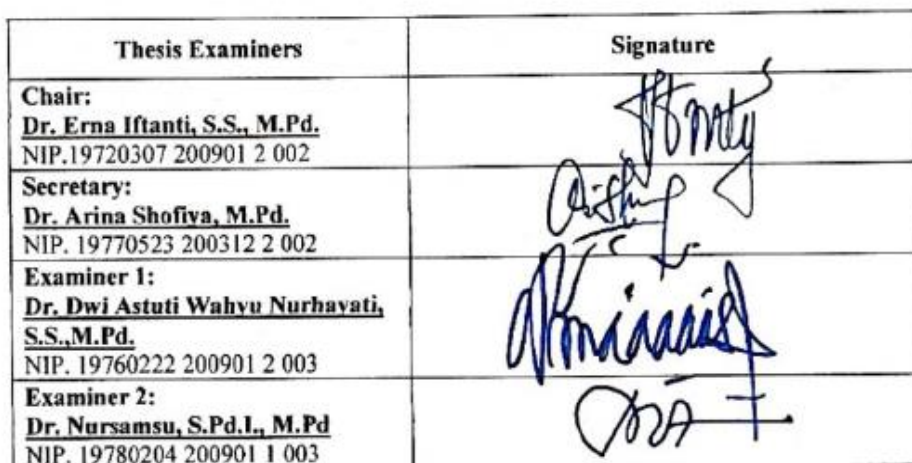 Thesis Examiners
Signature
Chair:
Dr. Erna Iftanti, S.S., M.Pd.
NIP.19720307 200901 2 002
Secretary:
Dr. Arina Shofiya, M.Pd.
NIP. 19770523 200312 2 002
Examiner 1:
Dr. Dwi Astuti Wahyu Nurhayati,
S.S.,M.Pd.
NIP. 19760222 200901 2 003
Examiner 2:
Dr. Nursamsu, S.Pd.I., M.Pd
NIP. 19780204 200901 1 003